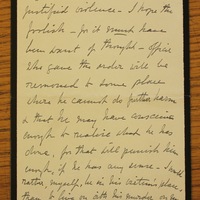 justified violence - I hope this
foolish - for it must have
been want of thought - officer
who gave this order will be
removed to some place
where he cannot do further harm
& that he may have conscience
enough to realize what he has
done, for that will punish him
enough, if he has any sense - I would
rather myself, be in his victim's place,
than to live on with his murder on my